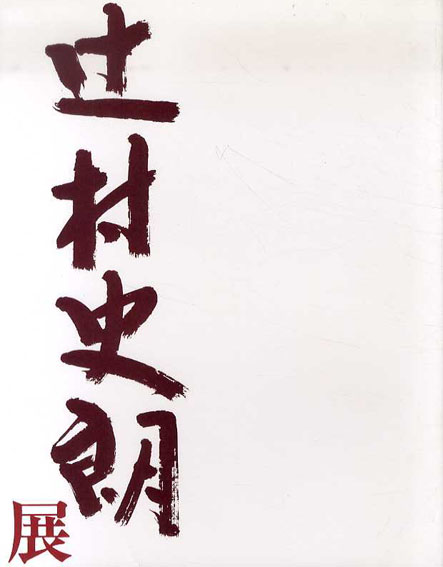 辻村史朗
展